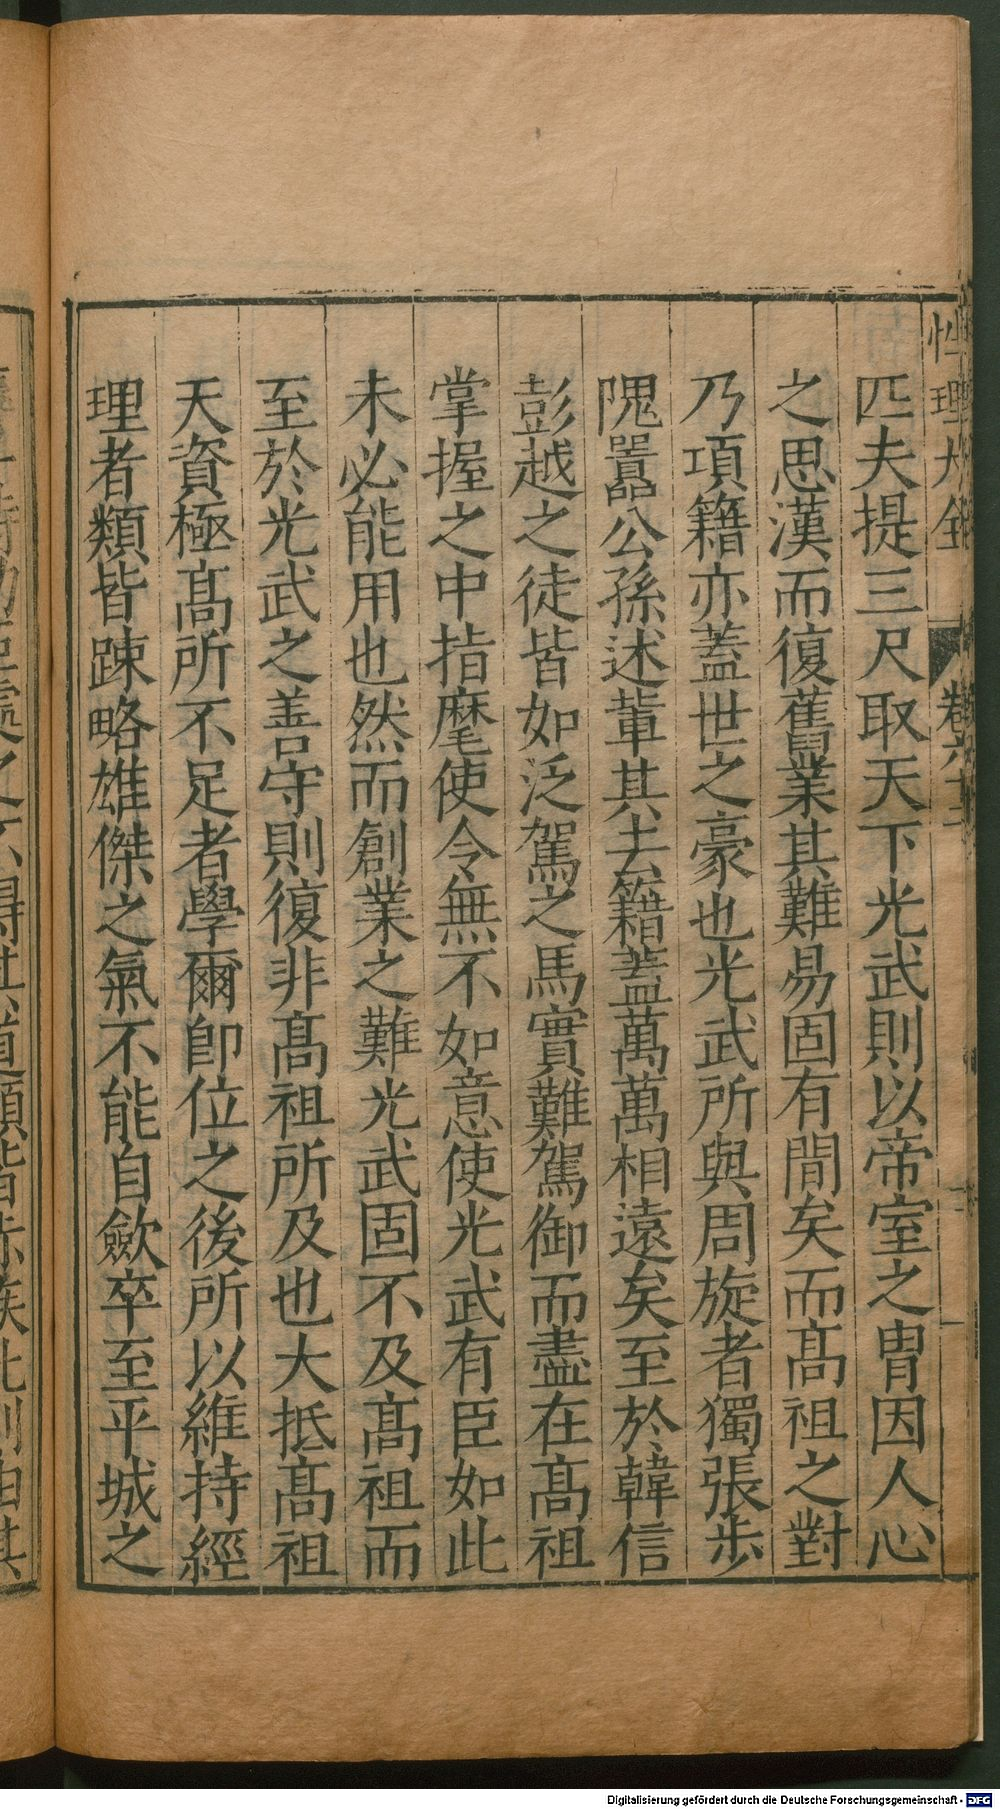 性理大全 卷六十二
匹夫提三尺取天下光武則以帝室之冑因人心
之思漢而復舊業其難易固有間矣而髙祖之對
乃項籍亦蓋世之豪也光武所與周旋者獨張步
隗囂公孫述軰其去籍蓋萬萬相遠矣至於韓信
彭越之徒皆如泛駕之馬實難駕御而盡在髙祖
掌握之中指麾使令無不如意使光武有臣如此
未必能用也然而創業之難光武固不及髙祖而
至於光武之善守則復非髙祖所及也大抵髙祖
天資極髙所不足者學爾卽位之後所以維持經
理者類皆踈略雄傑之氣不能自歛卒至平城之
Digitalisierung gefördert durch die Deutsche Forschungsgemeinschaft - DFG